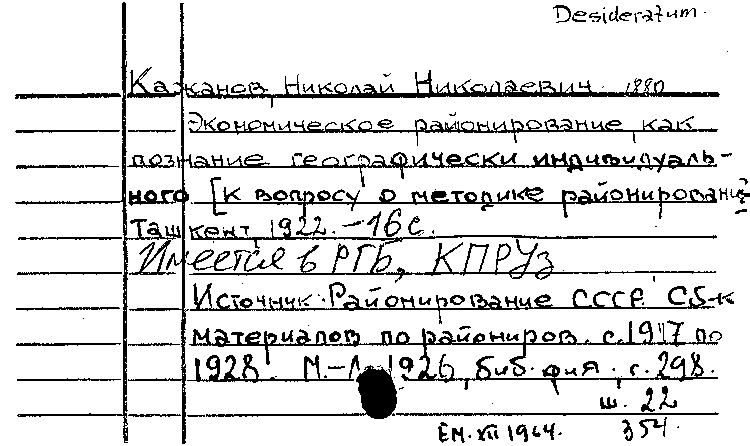 Desideratum.
Кажканов, Николай Николаевич. 1880
Экономическое районирование, как
познание географически индивидуаль-
ного [к вопросу о методике районирования
Ташкент, 1922. – 16 с.
Имеется в РГБ, КПРУз
Источник: Районирование СССР. Сб-к
материалов по райониров. с. 1917 по
1928. М.-Л. 1926, библ-фия, с. 298.
ш. 22
ЕМ. XII 1964. 354.